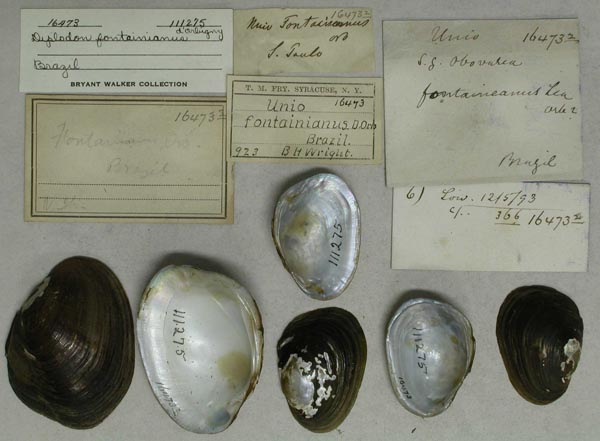 16473 111275
d'Orbigny
Diplodon fontainianus
Brazil
BRYANT WALKER COLLECTION
16473a
Unio Fontaineanus
orb
S. Paulo
Unio 16473a
S.g. Obovaria
fontaineanus Lea
Orb?
Brazil
16473a
Fontainianus
Brazil
T. M. FRY, SYRACUSE, N. Y.
Unio 16473
fontainianus. D. Orb
Brazil.
923 B H Wright.
6) Low. 12/5/93
c/.. 366 16473a
111275
111275
111275